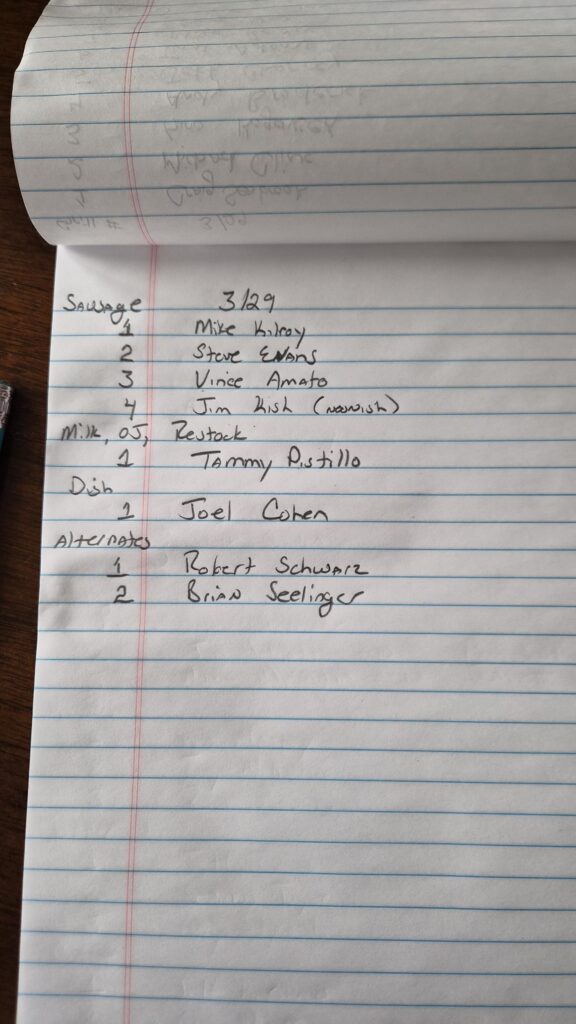 Sausage 3/29
1 Mike Kilroy
2 Steve Evans
3 Vince Amato
4 Jim Kish (noonish)
Milk, OJ, Restock
1 Tammy Pistillo
Dish
1 Joel Cohen
Alternates
1 Robert Schwarz
2 Brian Seelinger